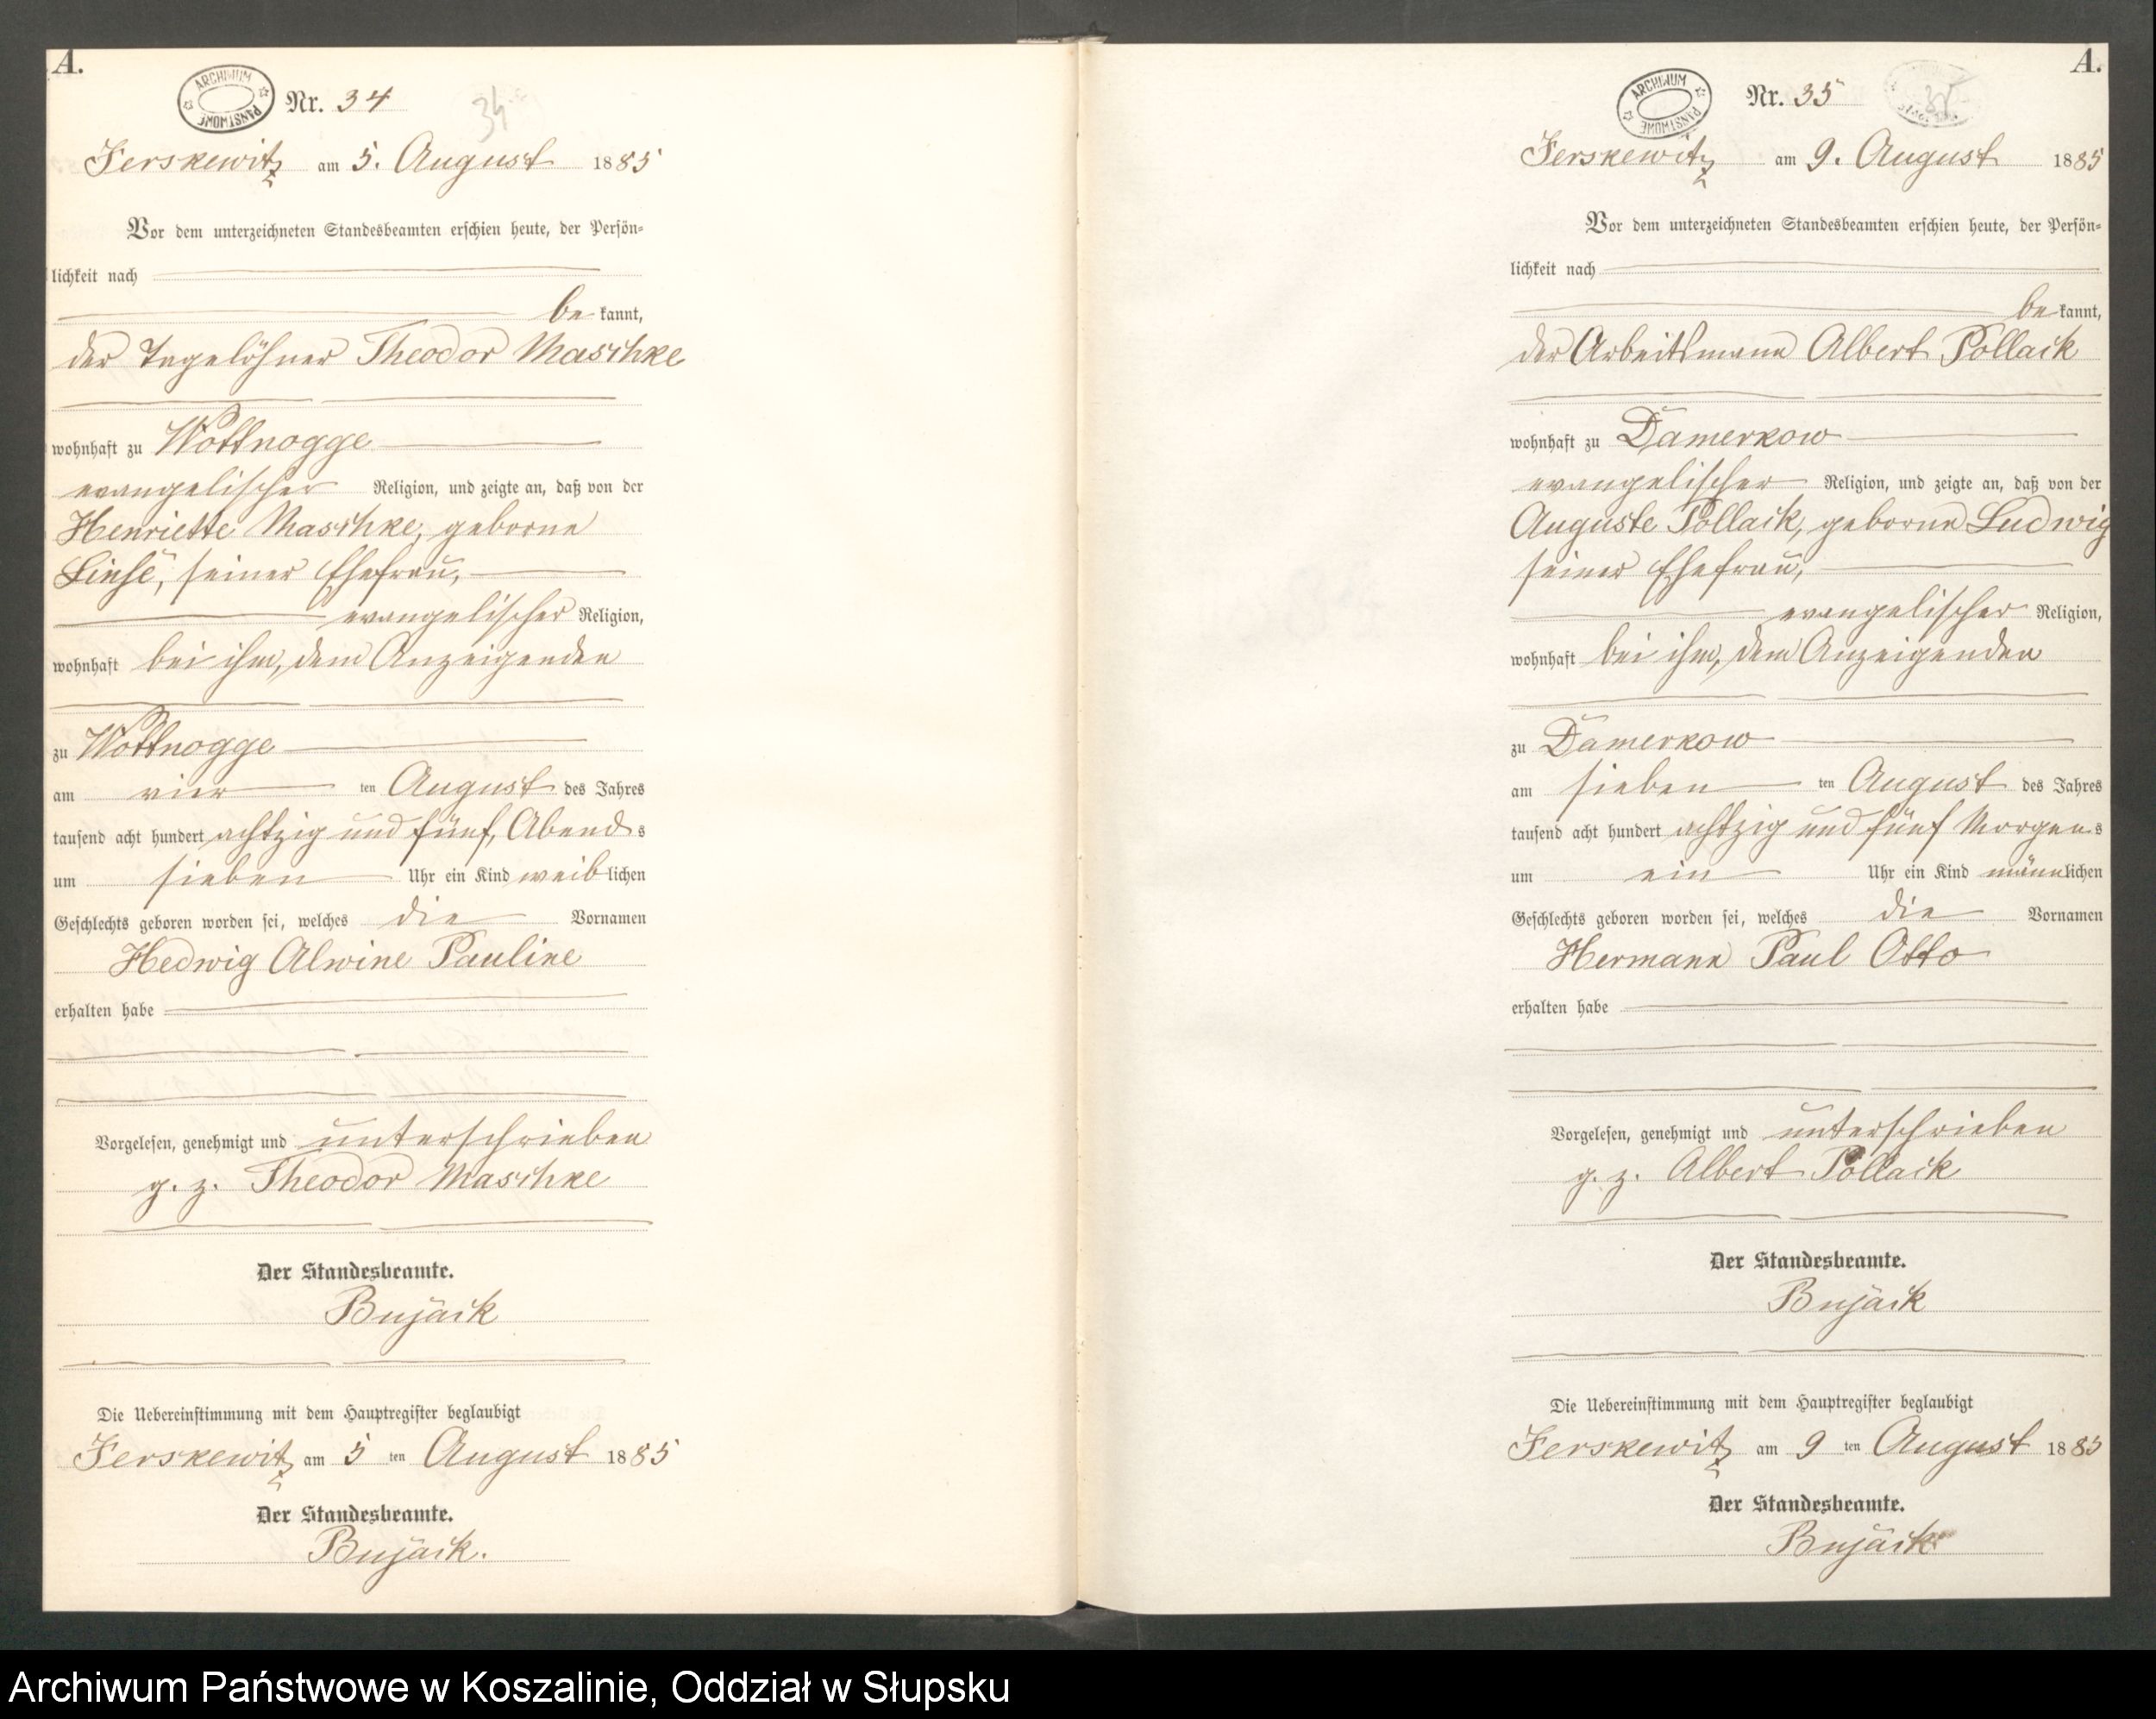 A.
ARCHIWUM PAŃSTWOWE
Nr. 34
34
Jerskewitz am 5. August 1885
Vor dem unterzeichneten Standesbeamten erschien heute, der Persön-
lichkeit nach
be kannt,
der Tagelöhner Theodor Maschke
wohnhaft zu Wottnogge
evangelischer Religion, und zeigte an, daß von der
Henriette Maschke, geborne
seiner Ehefrau,
evangelischer Religion,
wohnhaft bei ihm, dem Anzeigenden
zu Wottnogge
am vier ten August des Jahres
tausend acht hundert achtzig und fünf, Abends
um sieben Uhr ein Kind weiblichen
Geschlechts geboren worden sei, welches die Vornamen
Hedwig Alwine Pauline
erhalten habe
Vorgelesen, genehmigt und unterschrieben
g. z. Theodor Maschke
Der Standesbeamte.
Bujack
Die Uebereinstimmung mit dem Hauptregister beglaubigt
Jerskewitz am 5 ten August 1885
Der Standesbeamte.
Bujack.
A.
ARCHIWUM PAŃSTWOWE
Nr. 35
35
Jerskewitz am 9. August 1885
Vor dem unterzeichneten Standesbeamten erschien heute, der Persön-
lichkeit nach
be kannt,
der Arbeitsmann Albert Pollack
wohnhaft zu Damerkow
evangelischer Religion, und zeigte an, daß von der
Auguste Pollack, geborne Ludwig
seiner Ehefrau,
evangelischer Religion,
wohnhaft bei ihm, dem Anzeigenden
zu Damerkow
am sieben ten August des Jahres
tausend acht hundert achtzig und fünf Morgens
um ein Uhr ein Kind männlichen
Geschlechts geboren worden sei, welches die Vornamen
Hermann Paul Otto
erhalten habe
Vorgelesen, genehmigt und unterschrieben
g. z. Albert Pollack
Der Standesbeamte.
Bujack
Die Uebereinstimmung mit dem Hauptregister beglaubigt
Jerskewitz am 9 ten August 1885
Der Standesbeamte.
Bujack
Archiwum Państwowe w Koszalinie, Oddział w Słupsku